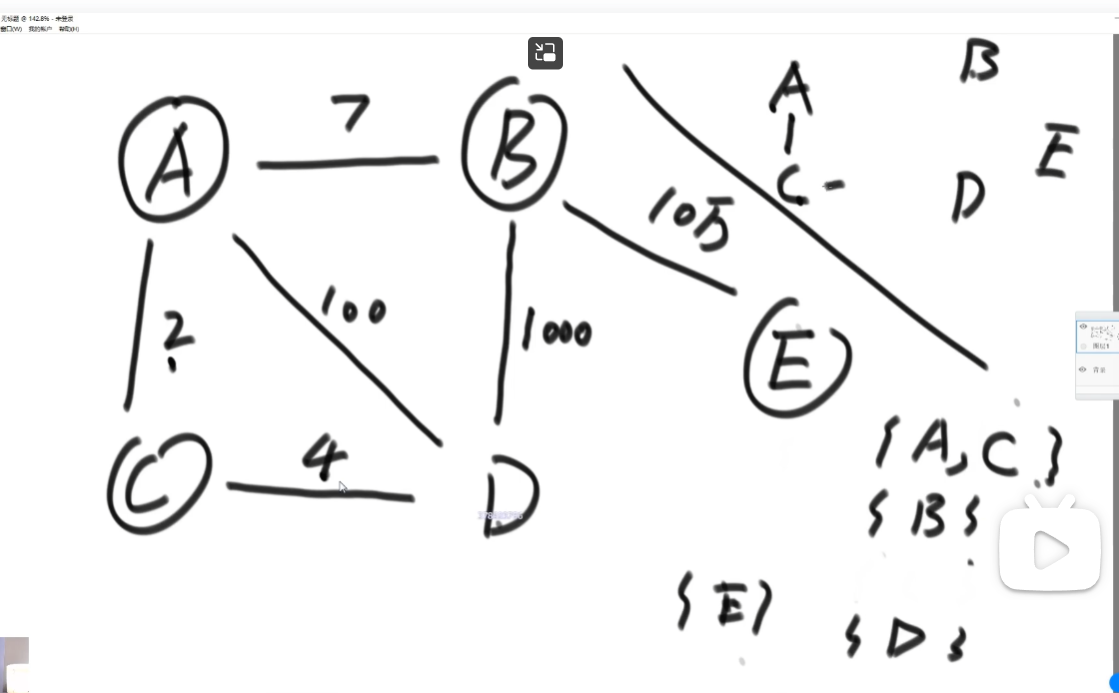 无标题 @ 142.8% - 未登录
窗口(W) 我的帐户 帮助(H)
A 7 B
2
100
1000
10万
C 4 D
E
A
C
B
E
D
{A,C}
{B}
{E}
{D}
图层1
背景